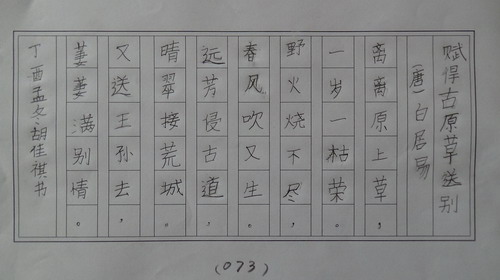 赋得古原草送别
(唐)白居易
离离原上草，
一岁一枯荣。
野火烧不尽，
春风吹又生。
远芳侵古道，
晴翠接荒城。
又送王孙去，
萋萋满别情。
丁酉孟冬胡佳祺书
(073)